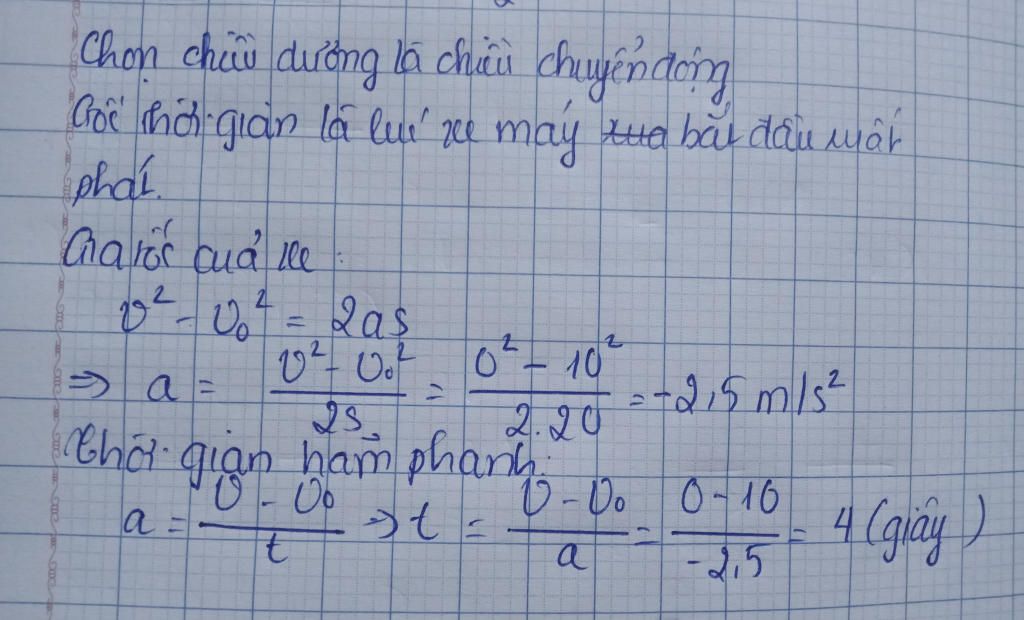 Chọn chiều dương là chiều chuyển động
Gốc thời gian là lúc xe máy bắt đầu xuất
phát.
Gia tốc của xe :
v² - v₀² = 2as
⇒ a = (v² - v₀²)/(2s) = (0² - 10²)/(2.20) = -2,5 m/s²
thời gian hãm phanh:
a = (v - v₀)/t ⇒ t = (v - v₀)/a = (0 - 10)/(-2,5) = 4 (giây)